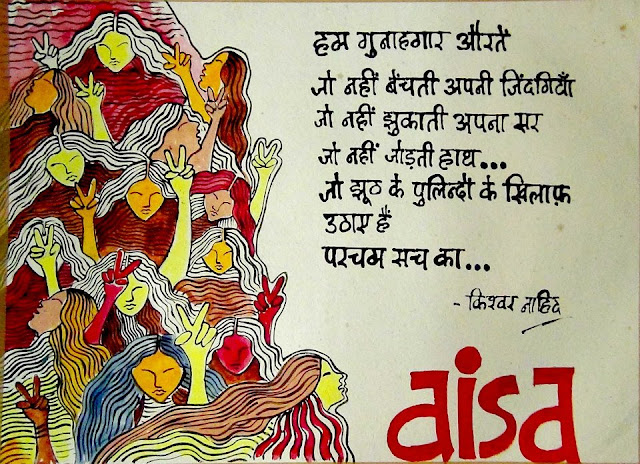 हम गुनाहगार औरतें
जो नहीं बेंचती अपनी जिंदगियाँ
जो नहीं झुकाती अपना सर
जो नहीं जोड़ती हाथ...
जो झूठ के पुलिन्दों के खिलाफ़
उठाए हैं
परचम सच का...
- किश्वर नाहिद
aisa